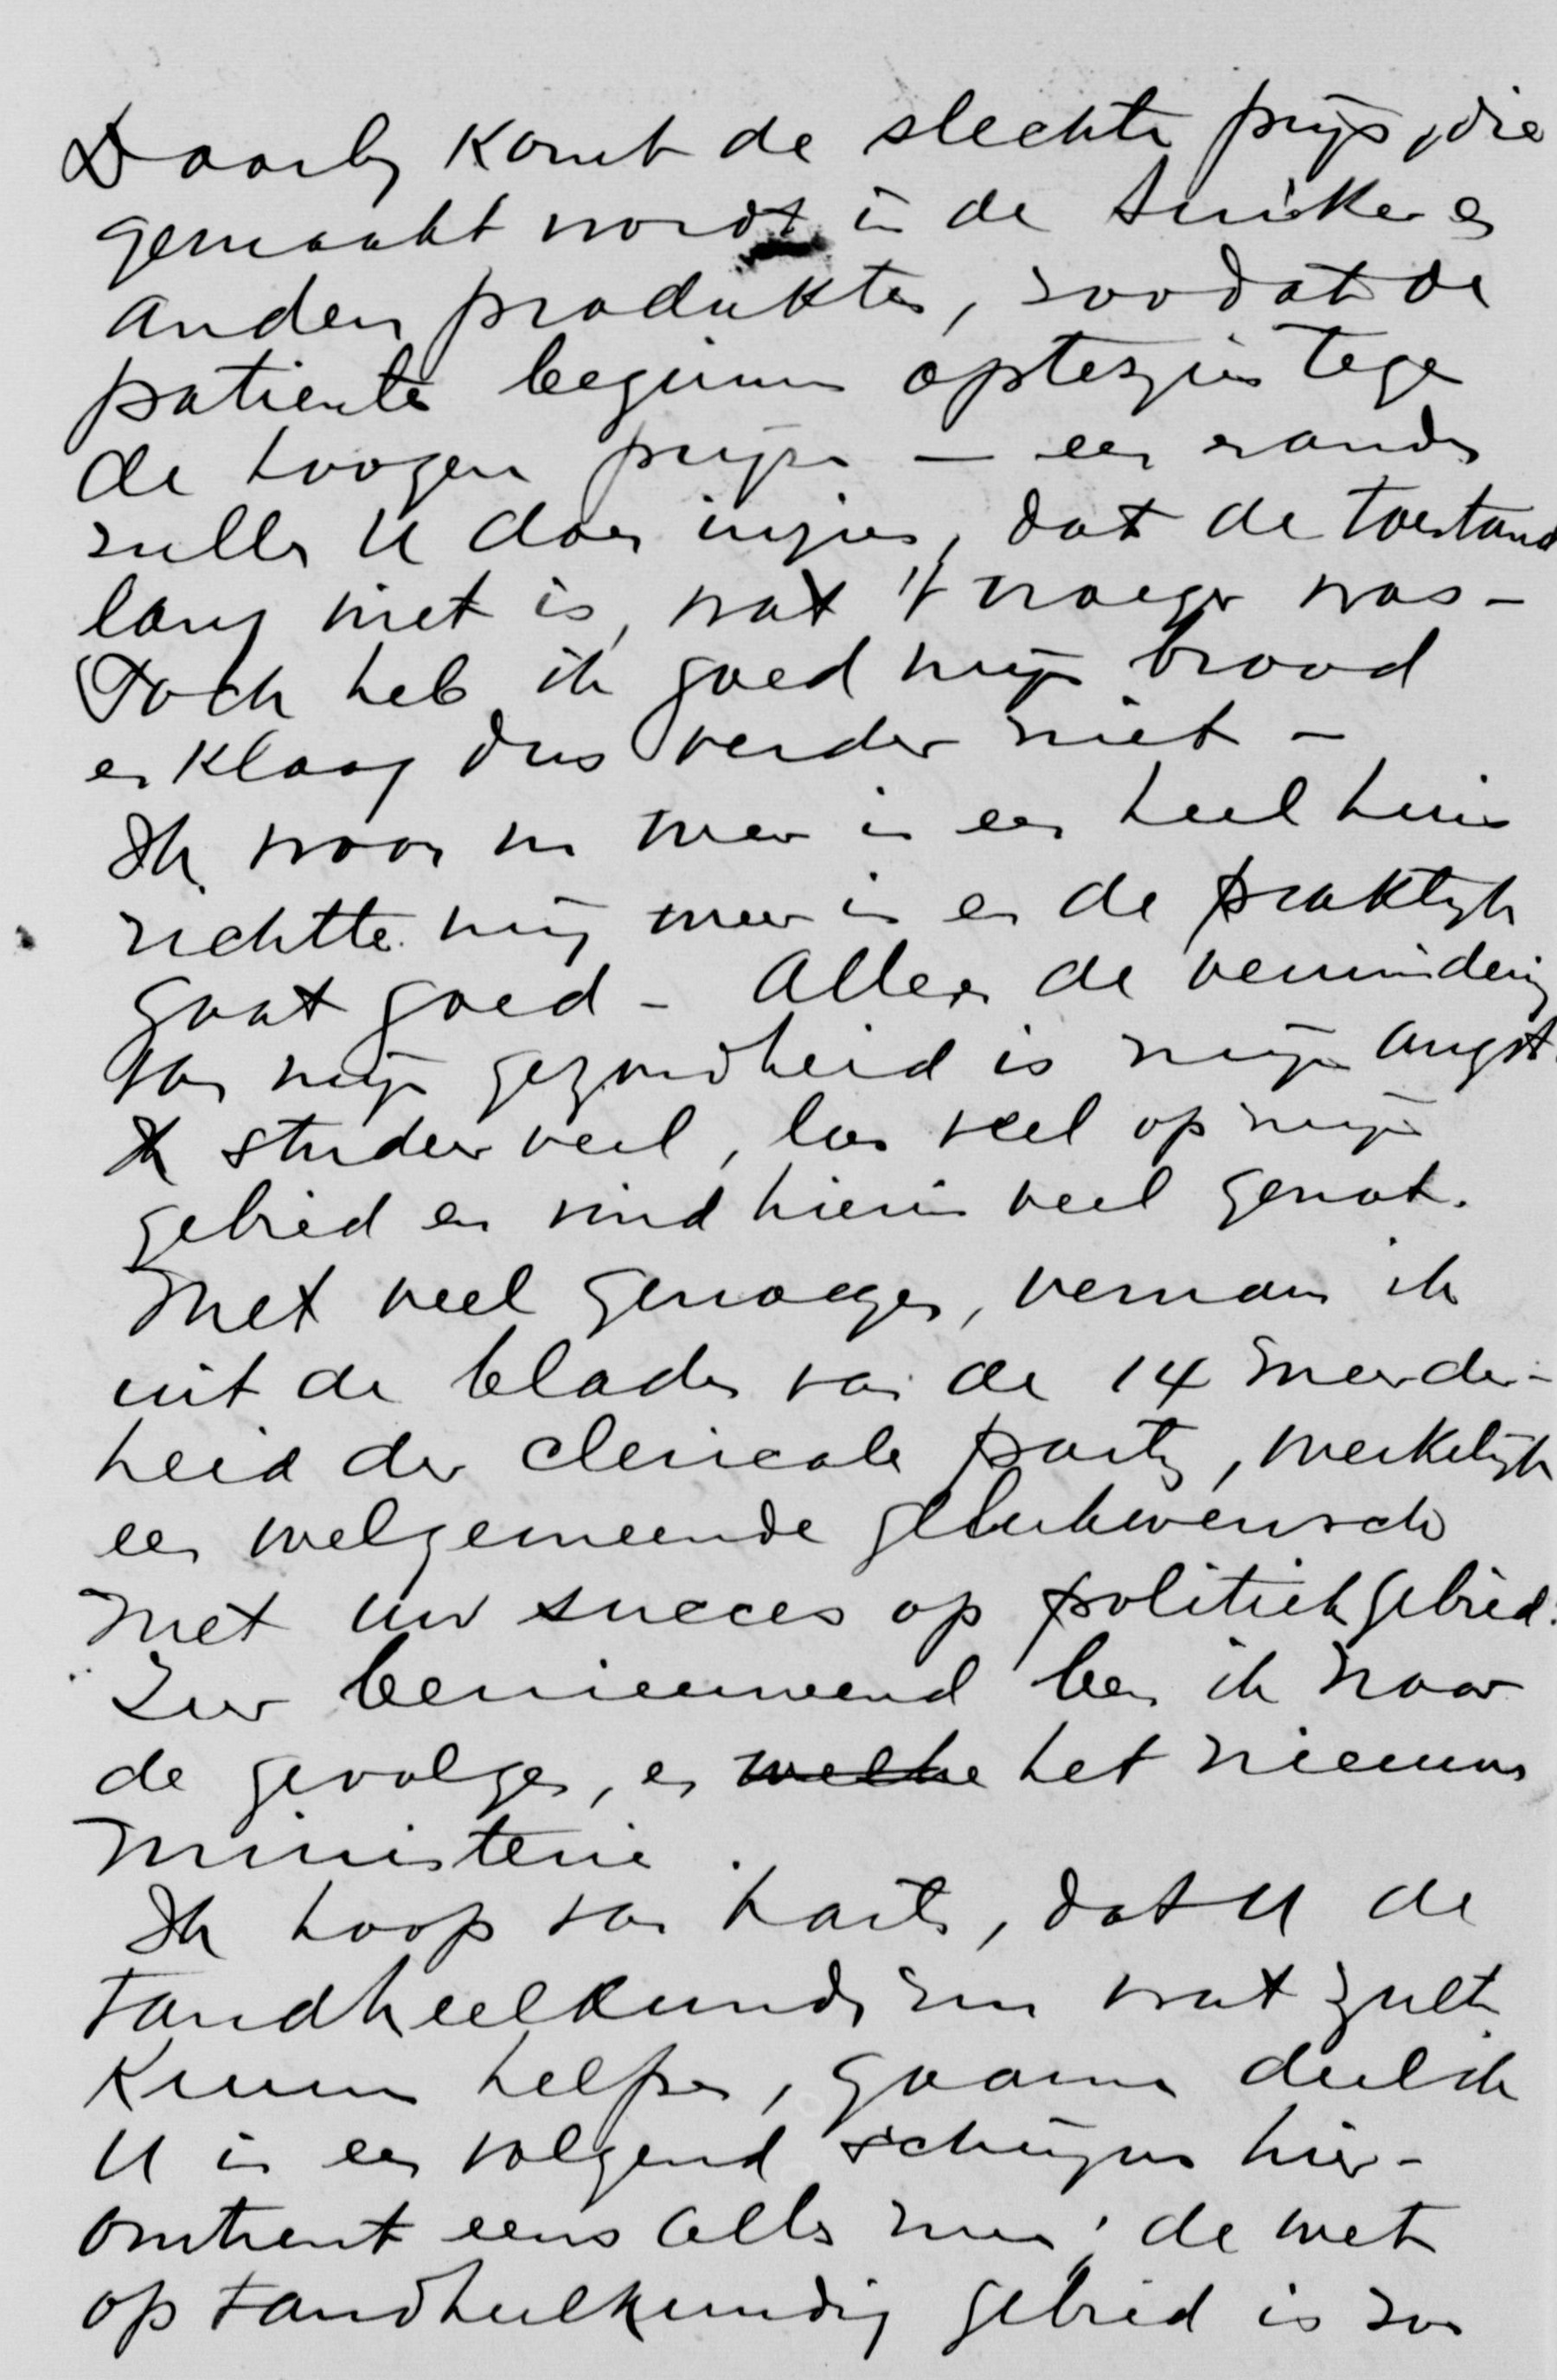 Daarbij komt de slechte prijs, die
gemaakt wordt in de suiker en
andere produkten, zoodat de
patienten beginnen optezien tegen
de hoogen prijzen — een en ander
zullen U doen inzien, dat de toestand
lang niet is, wat 't vroeger was –
Toch heb ik goed mijn brood
en klaag dus verder niet –
Ik woon nu weer in een heel huis
richtte mij weer in en de praktijk
gaat goed – Alleen de vermindering
van mijn gezondheid is mijn angst.
Ik studeer veel, lees veel op mijn
gebied en vind hierin veel genot.
Met veel genoegen, vernam ik
uit de bladen van de 14 meerder-
heid der clericale partij, werkelijk
een welgemeende gelukwensch
met uw succes op politiek gebied.
Zeer benieuwend ben ik naar
de gevolgen, en welke het nieuwe
ministerie.
Ik hoop van harte, dat U de
tandheelkunde zin wat zult
kunnen helpen, gaarne deel ik
U in een volgend schrijven hier-
omtrent eens alles mee, de wet
op tandheelkundig gebied is zoo